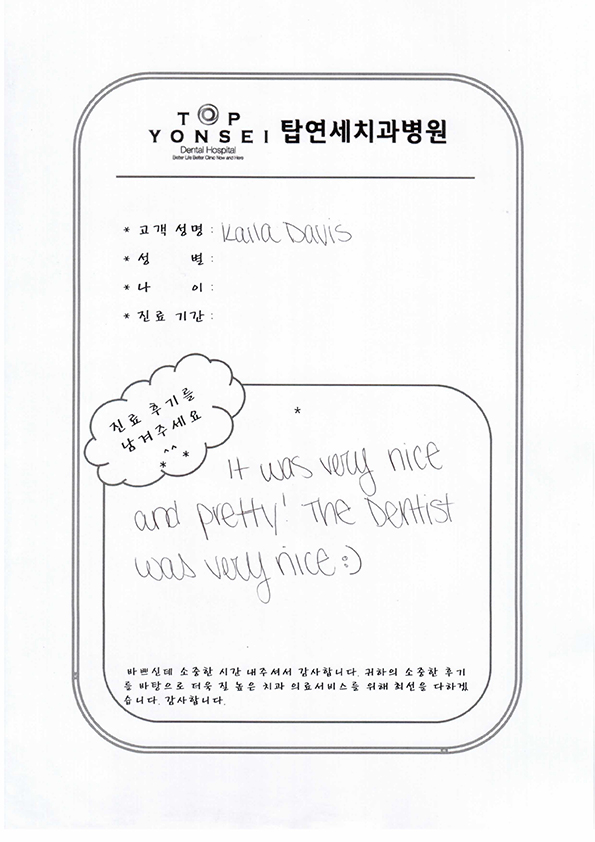 TOP
YONSEI 탑연세치과병원
Dental Hospital
Better Life Better Clinic Now and Here
* 고객 성명 : Kaila Davis
* 성 별 :
* 나 이 :
* 진료 기간 :
진료 후기를
남겨주세요
^^
* *
*
It was very nice
and pretty! The Dentist
was very nice :)
바쁘신데 소중한 시간 내주셔서 감사합니다. 귀하의 소중한 후기
를 바탕으로 더욱 질 높은 치과 의료서비스를 위해 최선을 다하겠
습니다. 감사합니다.